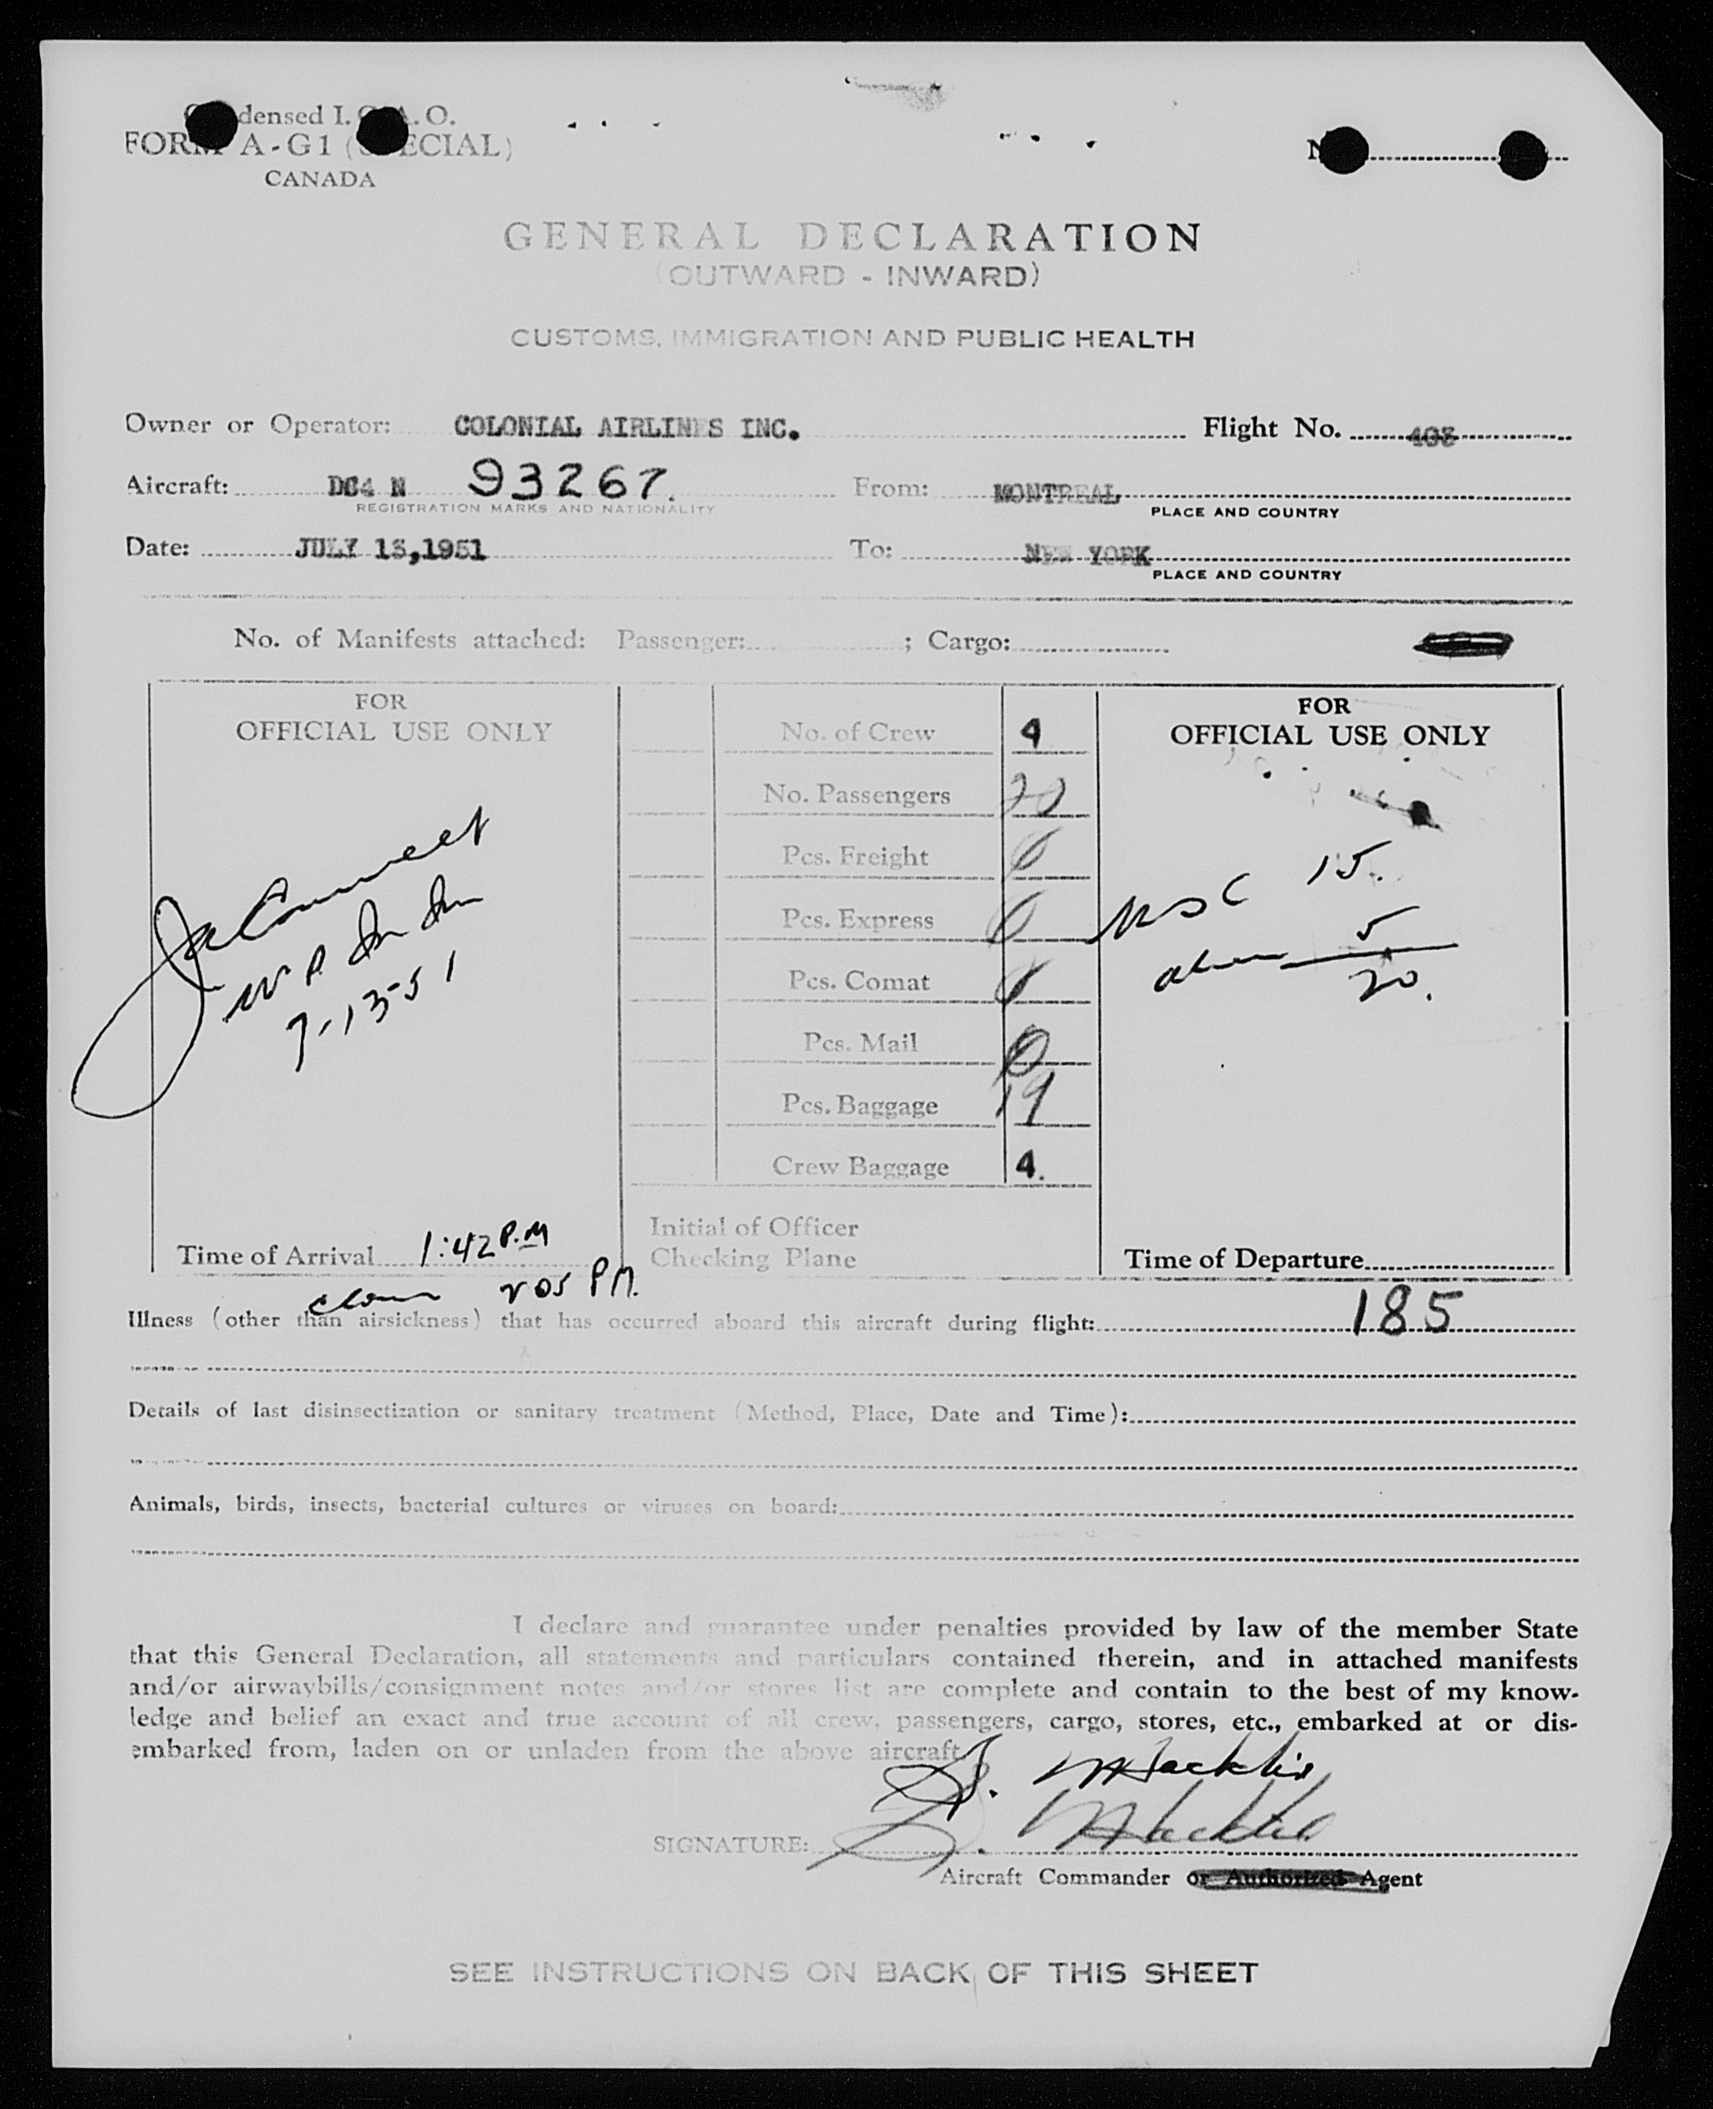 Condensed I.C.A.O.
FORM A-G1 (SPECIAL)
CANADA
GENERAL DECLARATION
(OUTWARD - INWARD)
CUSTOMS, IMMIGRATION AND PUBLIC HEALTH
Owner or Operator: COLONIAL AIRLINES INC. Flight No. 403
Aircraft: DC4 N 93267. From: MONTREAL
REGISTRATION MARKS AND NATIONALITY PLACE AND COUNTRY
Date: JULY 13,1951 To: NEW YORK
PLACE AND COUNTRY
No. of Manifests attached: Passenger: ; Cargo:
FOR
OFFICIAL USE ONLY
7-13-51
Time of Arrival 1:42 P.M
205 PM.
No. of Crew 4
No. Passengers 20
Pcs. Freight 0
Pcs. Express 0
Pcs. Comat 0
Pcs. Mail 0
Pcs. Baggage 19
Crew Baggage 4.
Initial of Officer
Checking Plane
FOR
OFFICIAL USE ONLY
USC 15.
alien 5
20.
Time of Departure
Illness (other than airsickness) that has occurred aboard this aircraft during flight: 185
Details of last disinsectization or sanitary treatment (Method, Place, Date and Time):
Animals, birds, insects, bacterial cultures or viruses on board:
I declare and guarantee under penalties provided by law of the member State
that this General Declaration, all statements and particulars contained therein, and in attached manifests
and/or airwaybills/consignment notes and/or stores list are complete and contain to the best of my know-
ledge and belief an exact and true account of all crew, passengers, cargo, stores, etc., embarked at or dis-
embarked from, laden on or unladen from the above aircraft.
SIGNATURE:
Aircraft Commander or Authorized Agent
SEE INSTRUCTIONS ON BACK OF THIS SHEET